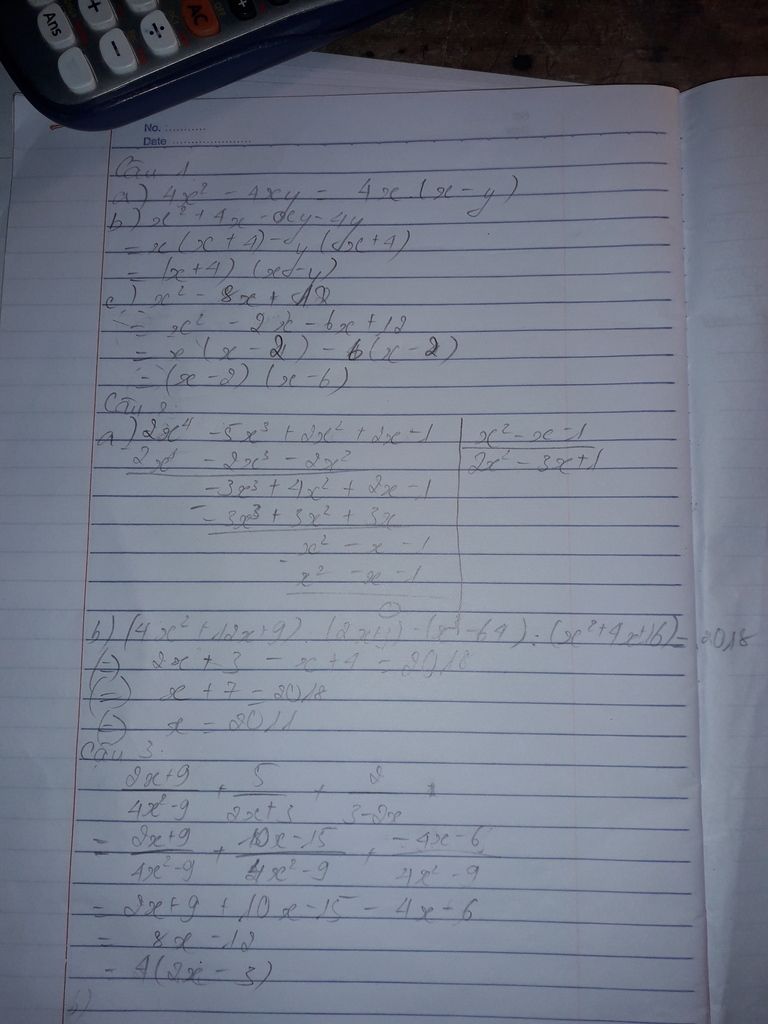 Ans + ÷ AC
−
+
No. ..........
Date ......................
Câu 1
a) 4x² - 4xy = 4x.(x-y)
b) x² + 4x - xy - 4y
= x(x+4) - y(x+4)
= (x+4) (x-y)
c) x² - 8x + 12
= x² - 2x - 6x + 12
= x (x-2) - 6(x-2)
= (x-2) (x-6)
Câu 2:
a) 2x⁴ - 5x³ + 2x² + 2x - 1 | x² - x - 1
2x⁴ - 2x³ - 2x² | 2x² - 3x + 1
-3x³ + 4x² + 2x - 1
- -3x³ + 3x² + 3x
x² - x - 1
- x² - x - 1
0
b) (4x² + 12x + 9) : (2x+3) - (x³ - 64) : (x² + 4x + 16) = 2018
(=) 2x + 3 - x + 4 = 2018
(=) x + 7 = 2018
(=) x = 2011
Câu 3:
2x+9/4x²-9 + 5/2x+3 + 2/3-2x
= 2x+9/4x²-9 + 10x-15/4x²-9 + -4x-6/4x²-9
= 2x+9 + 10x - 15 - 4x - 6
= 8x - 12
= 4(2x - 3)
b)